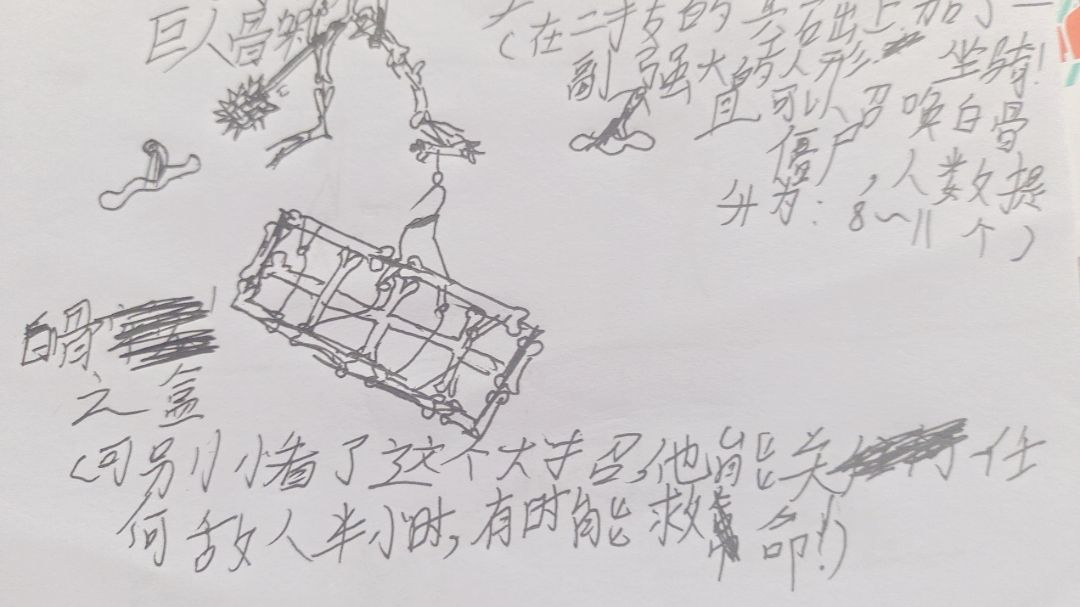 巨人骨
(在二技的
上加了一
副强大的人形 坐骑!
且可以召唤白骨
僵尸,人数提
升为:8~11个)
白骨
之盒
(可别小看了这个大招,他能关 任
何敌人半小时,有时能救 命!)